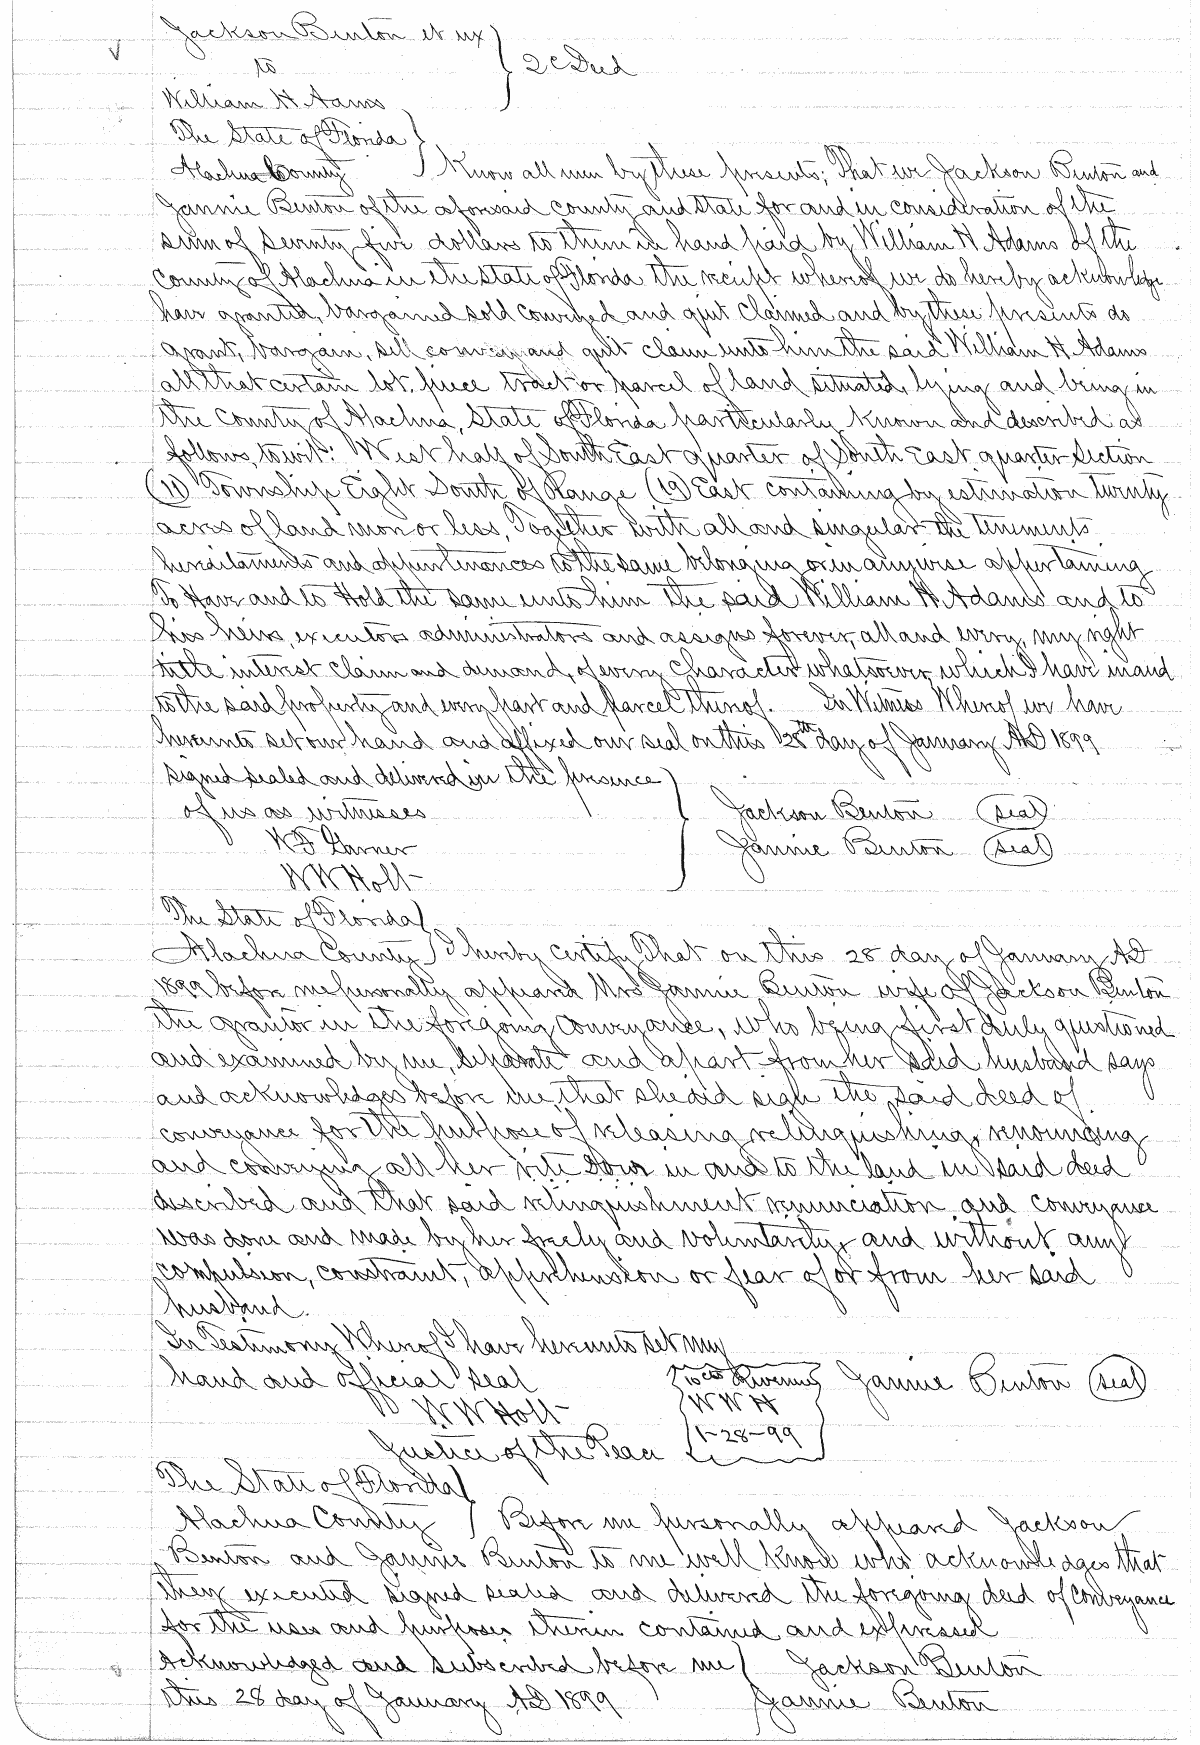 Jackson Benton et ux
to
2c Deed
William H. Adams
The State of Florida
Alachua County Know all men by these presents; That we Jackson Benton and
Jannie Benton of the aforesaid county and State for and in consideration of the
sum of Seventy five dollars to them in hand paid by William H Adams of the
County of Alachua in the State of Florida the receipt whereof we do hereby acknowledge
have granted, bargained sold conveyed and quit claimed and by these presents do
grant, bargain, sell convey and quit claim unto him the said William H. Adams
all that certain lot, piece tract or parcel of land situated, lying and being in
the County of Alachua, State of Florida particularly known and described as
follows, towit: West half of South East quarter of South East quarter Section
(11) Township Eight South of Range (19) East containing by estimation twenty
acres of land mor or less, Together with all and singular the tenements
hereditaments and appurtenances to the same belonging or in anywise appertaining
To Have and to Hold the same unto him the said William H. Adams and to
his heirs, executors administrators and assigns forever, all and every, my right
title interest claim and demand, of every character whatsoever which I have in and
to the said property and every part and parcel thereof. In Witness Whereof we have
hereunto set our hand and affixed our seal on this 28th day of January AD 1899
signed sealed and delivered in the presence
of us as witnesses
Jackson Benton (seal)
W S Garner
Jannie Benton (seal)
W W Holt
The State of Florida
Alachua County I hereby certify That on this 28 day of January AD
1899 before me personally appeared Mrs Jannie Benton wife of Jackson Benton
the grantor in the foregoing conveyance, who being first duly questioned
and examined by me, separate and apart from her said husband says
and acknowledges before me, that she did sign the said deed of
conveyance for the purpose of releasing relinquishing, renouncing
and conveying all her rite in and to the land in said deed
described and that said relinquishment renunciation and conveyance
was done and made by her freely and voluntarily, and without any
compulsion, constraint, apprehension or fear of or from her said
husband.
In Testimony Whereof I have hereunto set my
hand and official seal
10cts Revenue Jannie Benton (seal)
W W Holt
W W H
1-28-99
Justice of the Peace
The State of Florida
Alachua County Before me personally appeared Jackson
Benton and Jannie Benton to me well know who acknowledges that
they executed signed sealed and delivered the foregoing deed of conveyance
for the uses and purposes therein contained and expressed
Acknowledged and subscribed before me Jackson Benton
this 28 day of January AD 1899 Jannie Benton